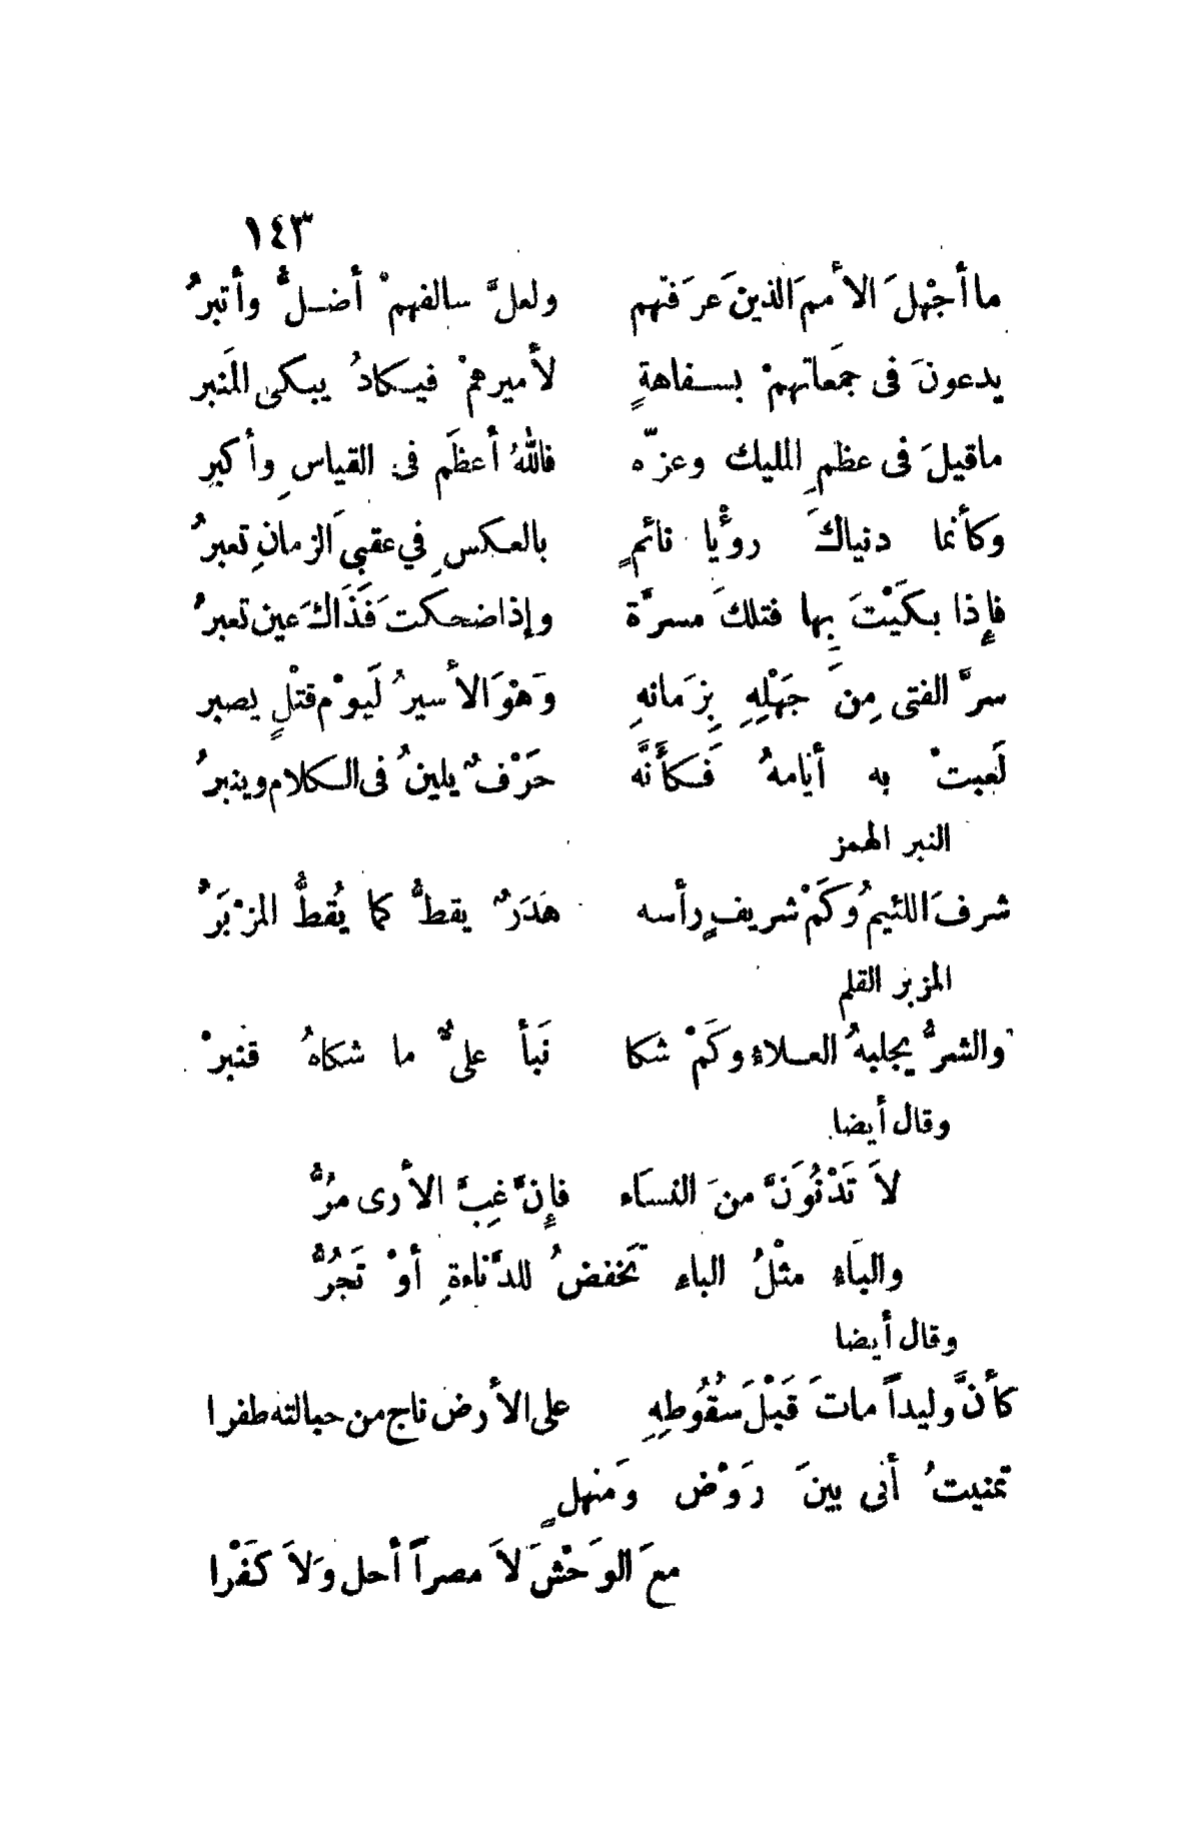 ١٤٣
ما أجْهلَ الأممَ الذينَ عرَفتهم ولعلَّ سالفهمْ أضـلُّ وأتبرُ
يدعونَ فى جمَعاتهمْ بسـفاهةٍ لأميرهمْ فيـكادُ يبـكى المَنبر
ماقيلَ فى عظمِ المليك وعزّه فاللهُ أعظَم فى القياسِ وأكبر
وَكأنما دنياكَ روْيا نائمٍ بالعـكسِ في عقبىَ الزمانِ تعبرُ
فإِذا بـكَيْتَ بِها فتلكَ مسرَّة وإذاضحكتَ فَذَاكَ عين تعبرُ
سرَّ الفتى مِنَ جَهْلِهِ بِزَمانهِ وَهْوَ الأسيرُ لَيوْم قتْلٍ يصبر
لَعبتْ به أيامهُ فَـكأَنَّه حَرْفٌ يلينُ فى الـكلام وينبرُ
النبر الهمز
شرفَ اللئيمُ وَكَمْ شريفٍ رأسه هَدَرٌ يقطُّ كما يُقطُّ المزْبَرُ
المزبر القلم
والشرُّ يجلبهُ العـلاءُ وكَمْ شكا نَبأ علىٌّ ما شكاهُ قنبرْ
وقال أيضا
لاَ تَدْنُوَنَّ منَ النسَاء فإِنَّ غِبَّ الأرى مُرُّ
والبَاءِ مثْلُ الباء تَخفضُ للدَّناءةِ أوْ تَجُرُّ
وقال أيضا
كأنَّ وليداً ماتَ قَبْلَ سُقُوطِهِ على الأرض ناج من حبالته طفرا
تمنيتُ أنى بينَ رَوْض وَمنهلٍ
معَ الوَحْشَ لاَ مصراً أحل وَلاَ كَفْرا